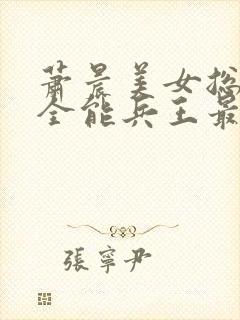 萧晨美女总
全能兵王最
張寧尹